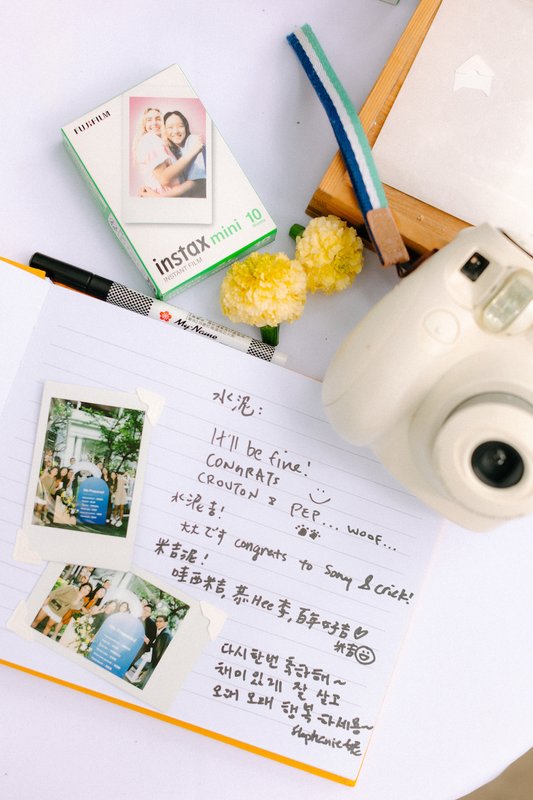 FUJIFILM
instax mini 10
INSTANT FILM
My Name
水泥：
It'll be fine!
CONGRATS
CROUTON & PEP... WOOF...
水泥吉！
大大です congrats to Sony & Crick!
米吉泥！
哇西米吉, 慕Hee李, 百年好吉♡
米吉
다시 한번 축하해~
재미있게 잘 살고
오래 오래 행복하세용~
Stephanie